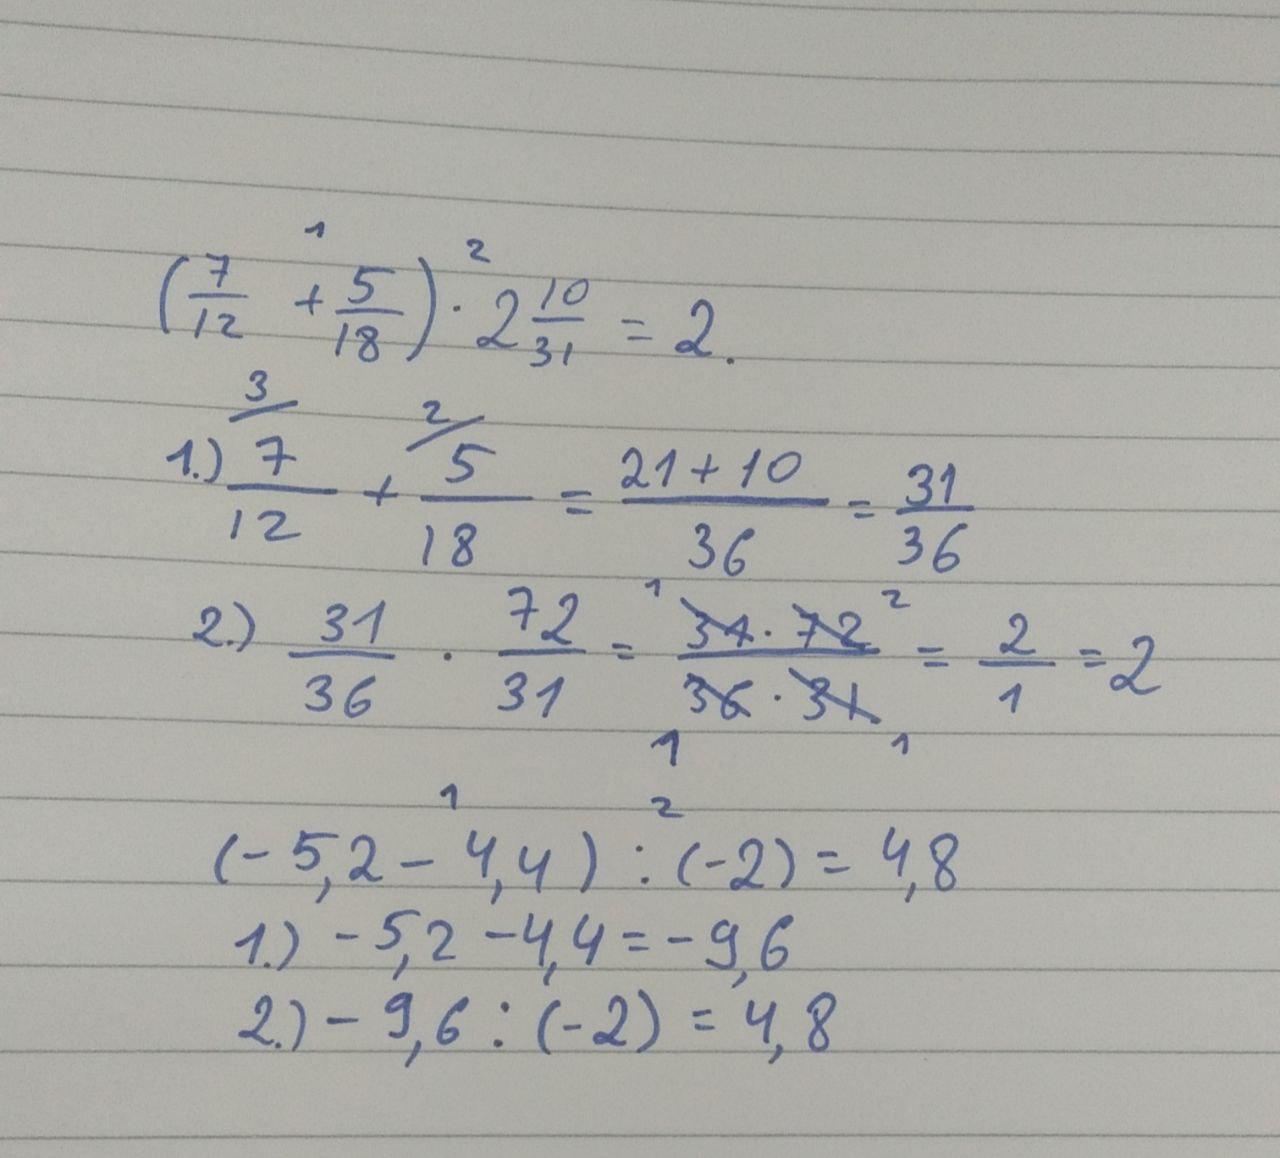 (7/12 + 5/18) · 2 10/31 = 2.
1 2
1.) 7/12 + 5/18 = 21+10/36 = 31/36
3/ 2/
2.) 31/36 · 72/31 = 31·72/36·31 = 2/1 = 2
1 2
1 1
1 2
(-5,2 - 4,4) : (-2) = 4,8
1.) -5,2 -4,4 = -9,6
2.) -9,6 : (-2) = 4,8